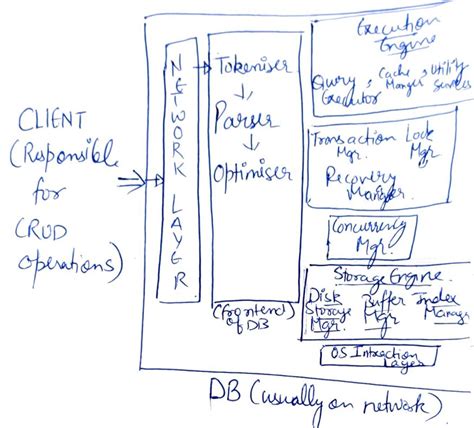 CLIENT
(Responsible
for
CRUD
operations)
NETWORK LAYER
Tokeniser
Parser
Optimiser
(frontend)
of DB
Execution
Engine
Query Executor, Cache Manger, Utility Services
Transaction Mgr. Lock Mgr.
Recovery
Manager
Concurrency
Mgr.
Storage Engine
Disk Storage Mgr. Buffer Mgr Index Manager
OS Intraction
Layer
DB (usually on network)